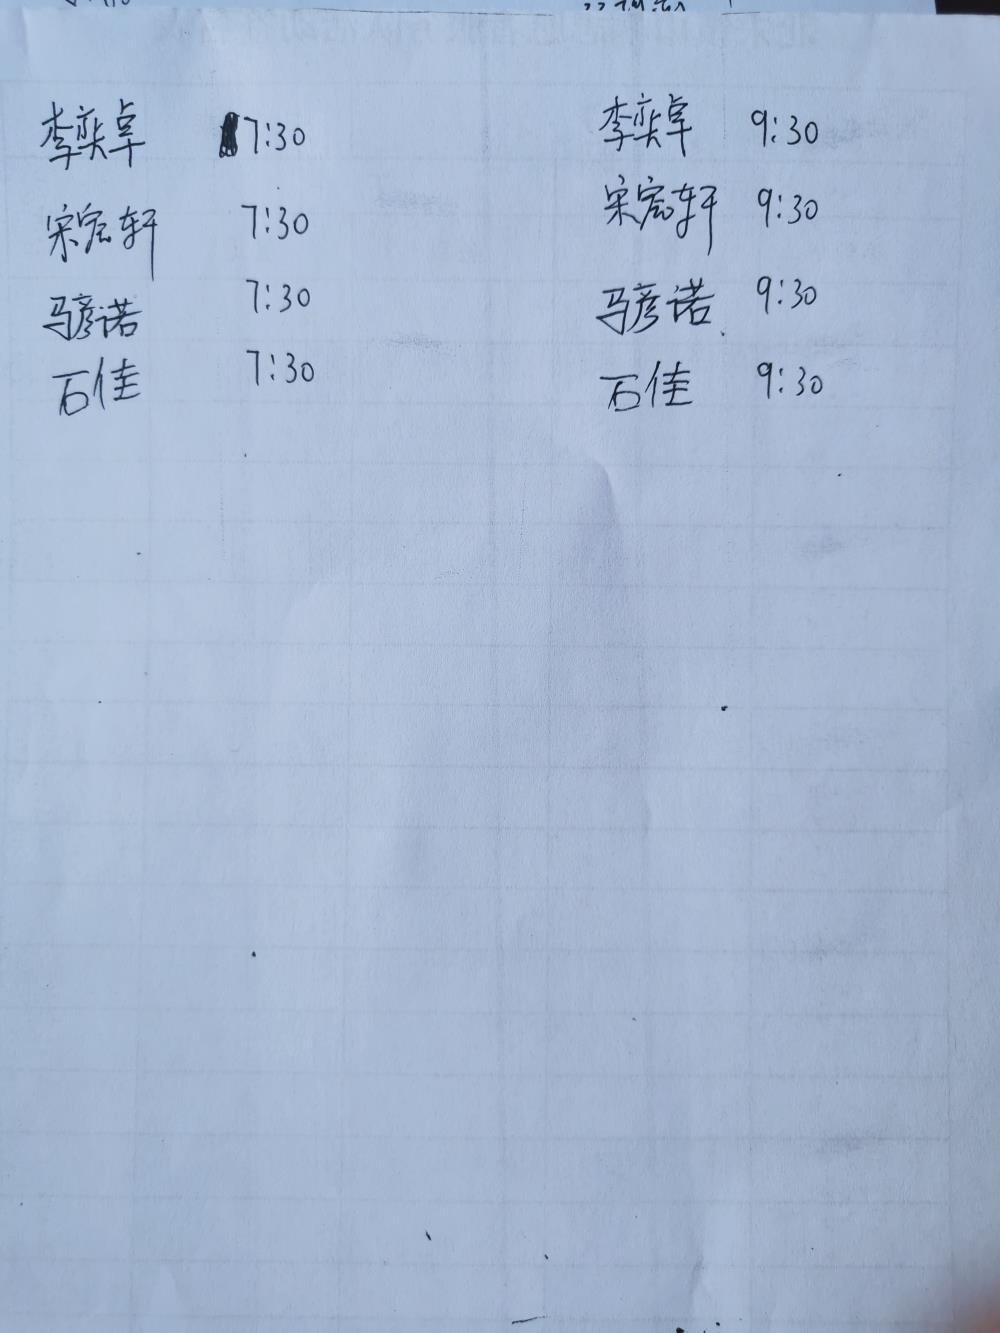 李奕卓 7:30 李奕卓 9:30
宋宏轩 7:30 宋宏轩 9:30
马彦诺 7:30 马彦诺 9:30
石佳 7:30 石佳 9:30